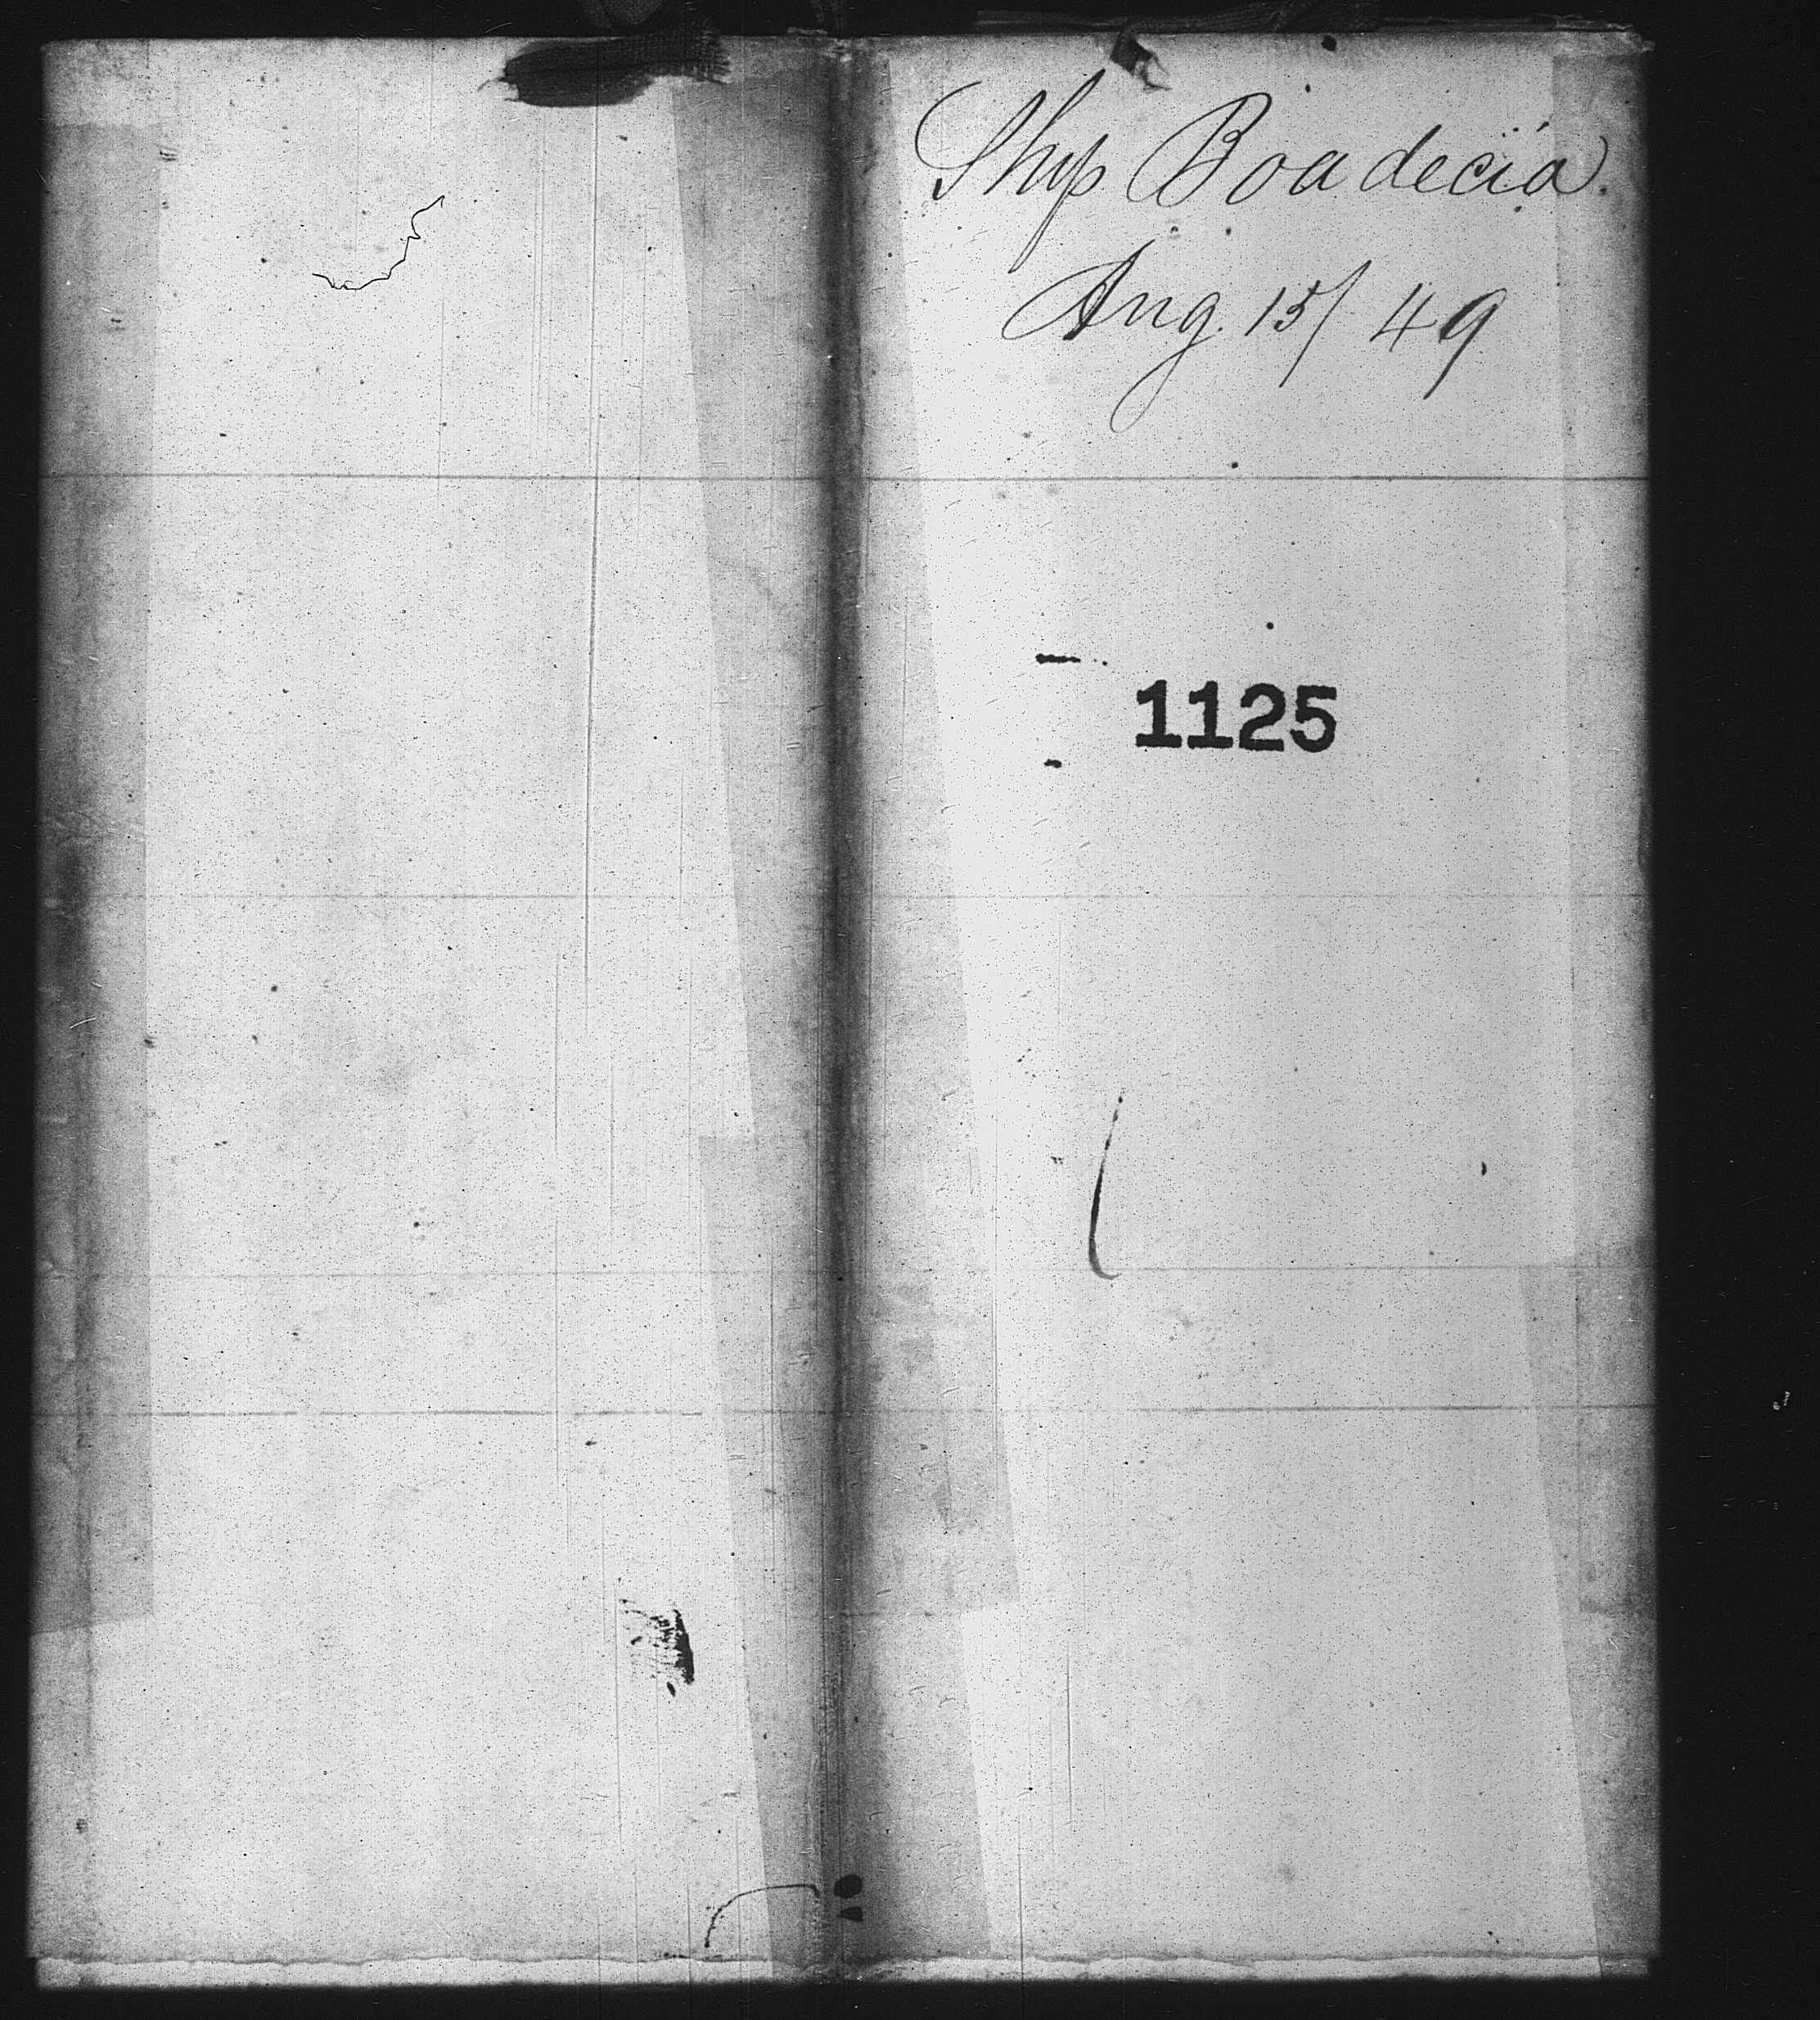 Ship Boadecia.
Aug. 15/49
1125